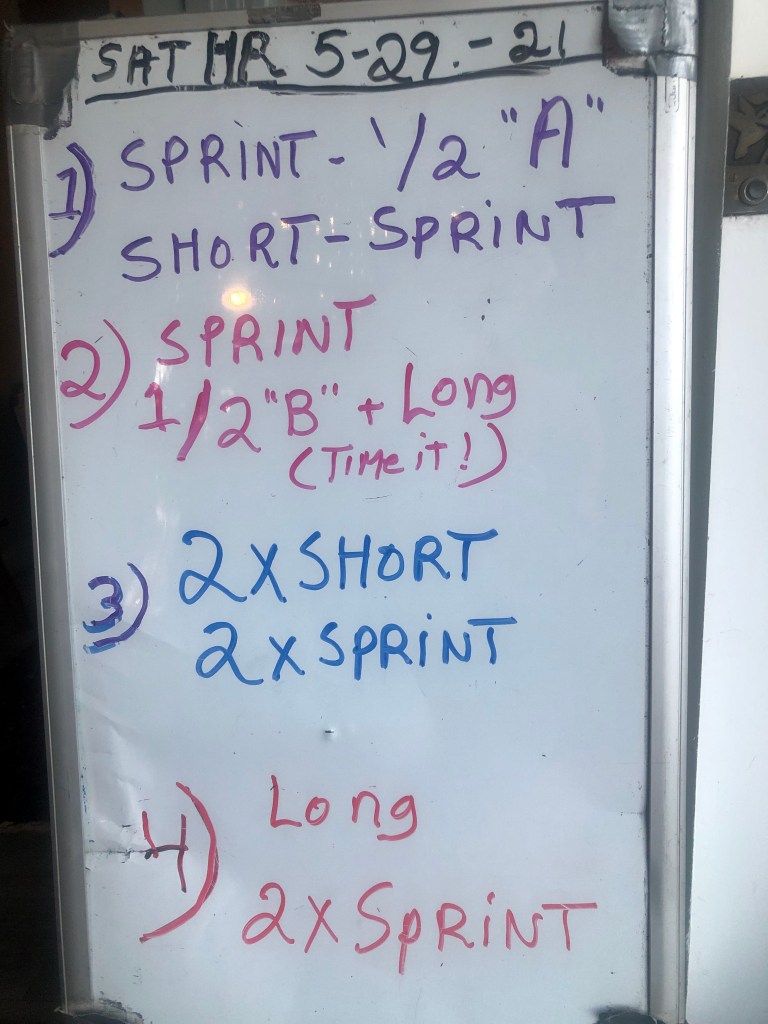 SAT HR 5-29.-21
1) SPRINT - 1/2 "A"
SHORT - SPRINT
2) SPRINT
1/2 "B" + Long
(Time it!)
3) 2X SHORT
2X SPRINT
4) Long
2X SPRINT